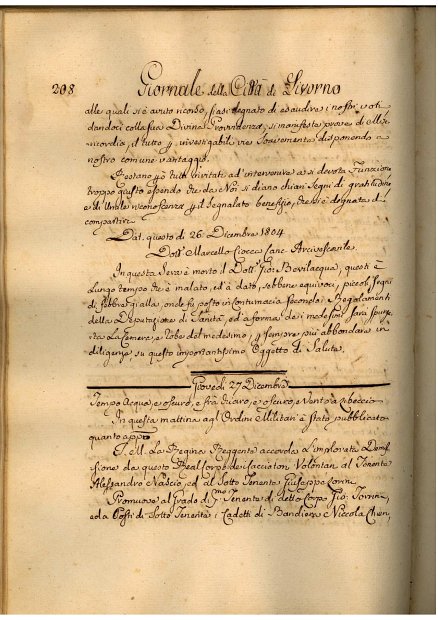 208 Giornale della Città di Livorno
alle quali si è avuto ricorso, siasi degnato di esaudire i nostri voti
dandoci colla sua Divina Provvidenza, sì manifeste prove di Mise
ricordia, il tutto p. investigabili vie Soavemente disponendo a
nostro comune vantaggio.
Restano p.ciò tutti invitati ad intervenire a sì devota Funzione
troppo giusto essendo che da Noi si diano chiari Segni di gratitudine
e di Umile riconoscenza p. il Segnalato benefizio, che si è degnata di
compartire
Dat. questo dì 26 Dicembre 1804
Dott. Marcello Canc. Arcivescovile.
In questa Sera è morto il Dott. Gio: Bevilacqua, questi è
Lungo tempo che è malato, ed à dato, sebbene equivoci, piccoli Segni
di febbre gialla, onde fu posto in Contumacia secondo i Regolamenti
della Deputazione di Sanità, ed a forma dei medesimi
La Camera, e robe del medesimo, p. sempre più abbondare in
diligenza su questo importantissimo Oggetto di Salute.
Giovedì 27 Dicembre
Tempo Acqua, e oscuro, e frà chiaro, e oscuro, e Vento a Libeccio
In questa mattina agl'Ordini Militari è stato pubblicato
quanto app.
S. M. La Regina Reggente accorda L'implorata Dimis
sione da questo Real Corpo de Cacciatori Volontari al Tenente
Alessandro Nascio, ed al Sotto Tenente Giuseppe
Promuove al Grado di Tenente di detto Corpo Gio:
ed a Posti di Sotto Tenente i Cadetti di Bandiera Niccola